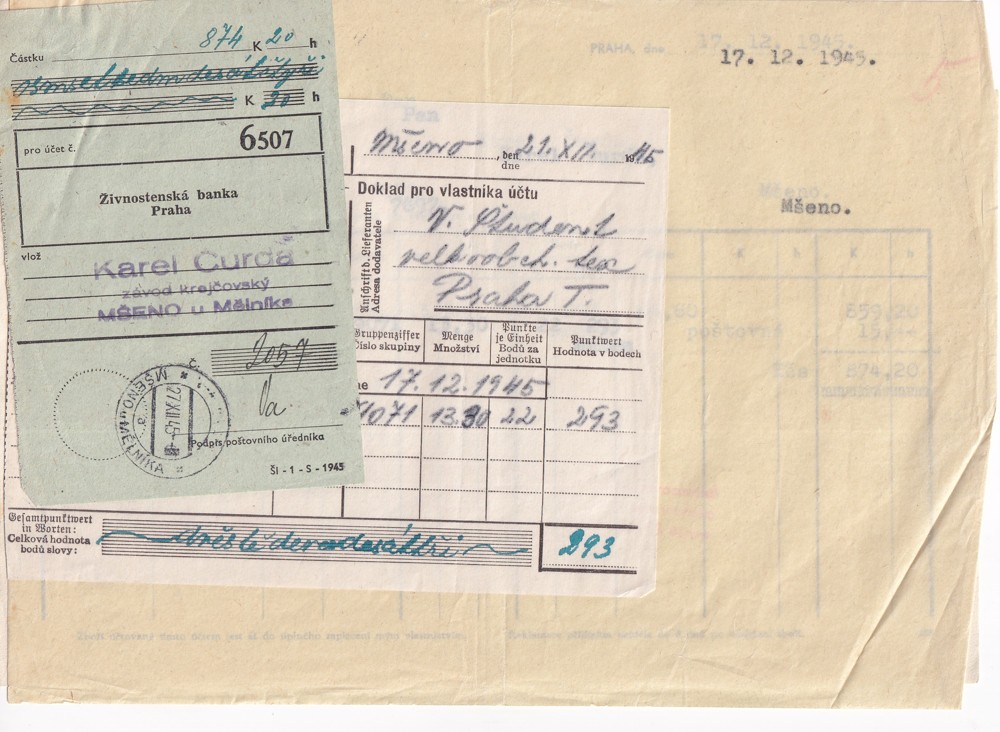 Částku 874 K 20 h
osmsetsedmdesátčtyři
K 20 h
pro účet č. 6507
Živnostenská banka
Praha
vlož
Karel Čurda
závod krejčovský
MŠENO u Mělníka
Č. 2057
MŠENO u MĚLNÍKA
27.XII.45
Podpis poštovního úředníka
ŠI - 1 - S - 1945
Mšeno, den 21. XII. 1945
dne
Doklad pro vlastníka účtu
Anschrift d. Lieferanten
Adresa dodavatele
V. Študent
velkoobch. tex
Praha I.
Gruppenziffer Menge Punkte je Einheit Punktwert
Číslo skupiny Množství Bodů za jednotku Hodnota v bodech
ne 17. 12. 1945
1071 13.30 22 293
Gesamtpunktwert
in Worten:
Celková hodnota
bodů slovy:
dvěstědevadesáttři 293
PRAHA, dne 17. 12. 1945.
17. 12. 1945.
Pan
Mšeno.
Mšeno.
K h K h
859,20
poštovné 15,--
874,20